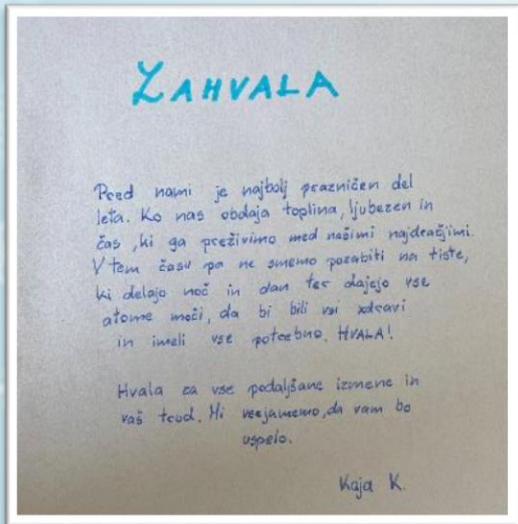 ZAHVALA
Pred nami je najbolj prazničen del
leta. Ko nas obdaja toplina, ljubezen in
čas, ki ga preživimo med našimi najdražjimi.
V tem času pa ne smemo pozabiti na tiste,
ki delajo noč in dan ter dajejo vse
atome moči, da bi bili vsi zdravi
in imeli vse potrebno. HVALA!
Hvala za vse podaljšane izmene in
vaš trud. Mi verjamemo, da vam bo
uspelo.
Kaja K.